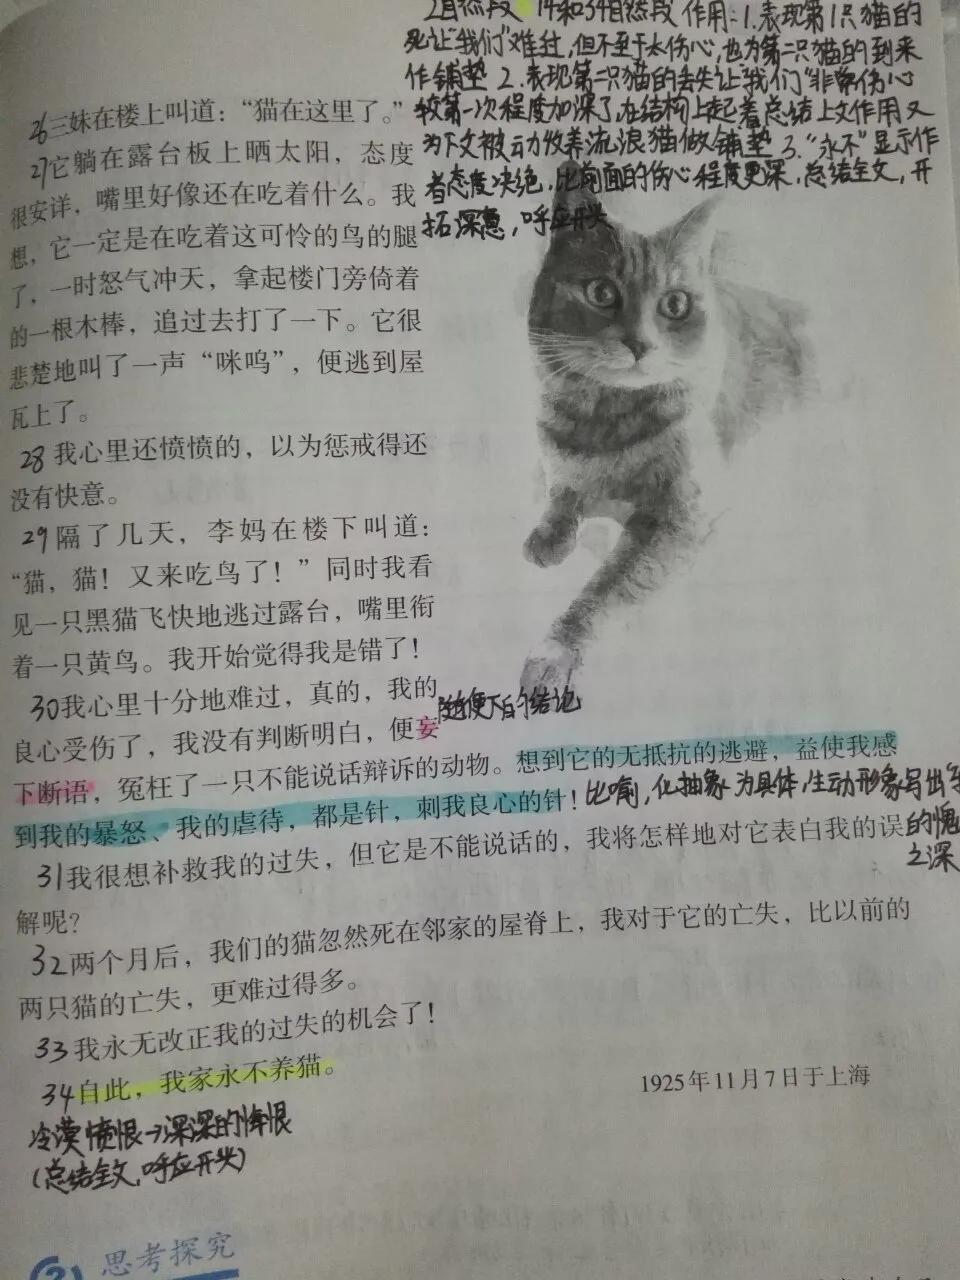 2自然段 14和34自然段 作用:1.表现第1只猫的
死让"我们"难过,但不至于太伤心,也为第二只猫的到来
作铺垫 2.表现第二只猫的丢失让"我们"非常伤心
较第一次程度加深了,在结构上起着总结上文作用又
为下文被动收养流浪猫做铺垫 3."永不"显示作
者态度决绝,比前面的伤心程度更深,总结全文,开
拓深意,呼应开头
26三妹在楼上叫道：“猫在这里了。”
27它躺在露台板上晒太阳，态度
很安详，嘴里好像还在吃着什么。我
想，它一定是在吃着这可怜的鸟的腿
了，一时怒气冲天，拿起楼门旁倚着
的一根木棒，追过去打了一下。它很
悲楚地叫了一声“咪呜”，便逃到屋
瓦上了。
28我心里还愤愤的，以为惩戒得还
没有快意。
29隔了几天，李妈在楼下叫道：
“猫，猫！又来吃鸟了！”同时我看
见一只黑猫飞快地逃过露台，嘴里衔
着一只黄鸟。我开始觉得我是错了！
30我心里十分地难过，真的，我的
随便下的结论
良心受伤了，我没有判断明白，便妄
下断语，冤枉了一只不能说话辩诉的动物。想到它的无抵抗的逃避，益使我感
到我的暴怒、我的虐待，都是针，刺我良心的针！
比喻,化抽象为具体,生动形象写出
的愧
之深
31我很想补救我的过失，但它是不能说话的，我将怎样地对它表白我的误
解呢？
32两个月后，我们的猫忽然死在邻家的屋脊上，我对于它的亡失，比以前的
两只猫的亡失，更难过得多。
33我永无改正我的过失的机会了！
34自此，我家永不养猫。
1925年11月7日于上海
冷漠愤恨→深深的悔恨
(总结全文,呼应开头)
思考探究